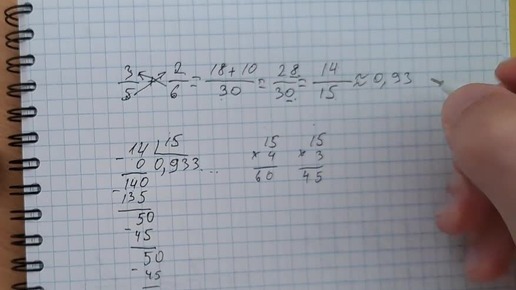 3/5 2/6 = 18+10/30 = 28/30 = 14/15 ≈ 0,93
-14 | 15
0 0,933...
140
-135
50
-45
50
-45
15
× 4
60
15
× 3
45